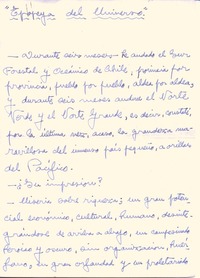 "Epopeya del Universo."
— Durante seis meses he andado el Sur
Forestal y Oceánico de Chile, provincia por
provincia, pueblo por pueblo, aldea por aldea,
y durante seis meses anduve el Norte
Verde y el Norte Grande, es decir, constaté,
por la última vez, acaso, la grandeza ma-
ravillosa del inmenso país pequeño, a orillas
del Pacífico.
— ¿Su impresión?
— Miseria sobre riqueza; un gran poten-
cial económico, cultural, humano, desin-
grándose de arriba a abajo, un campesinado
heroico y oscuro, sin organización, huér-
fano, en gran orfandad y un proletariado